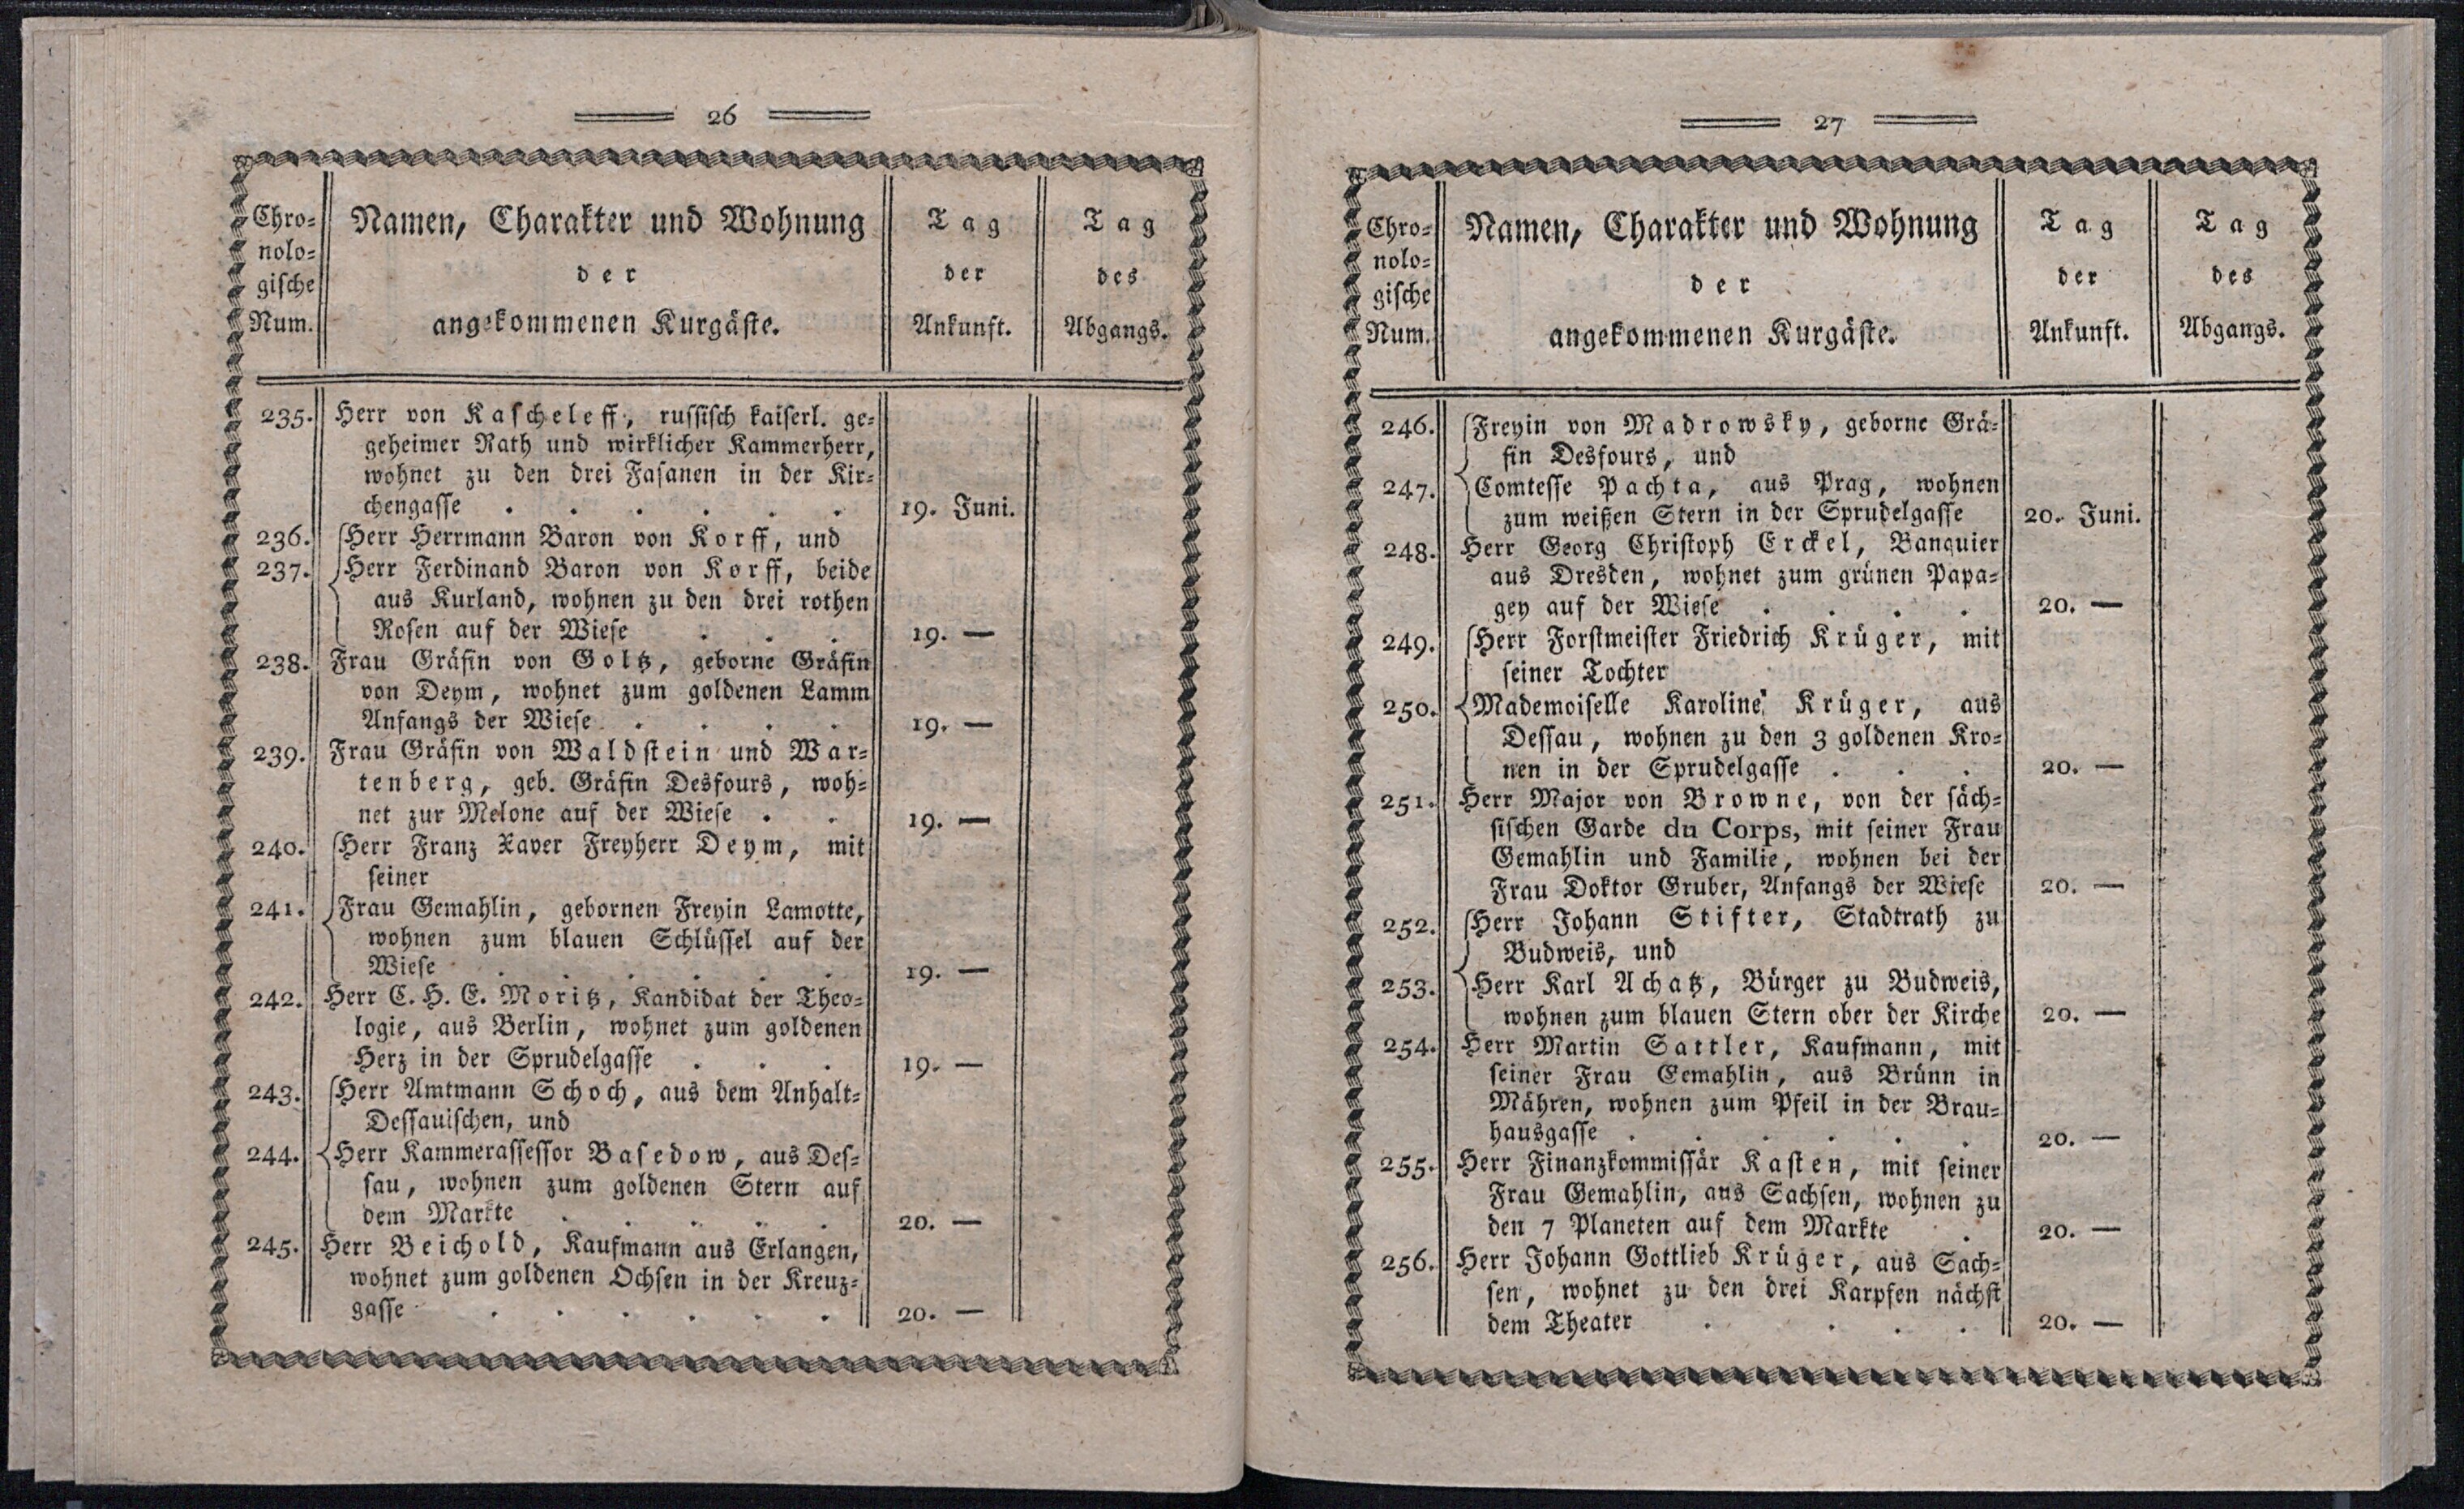 26
Chro-
nolo-
gische
Num.
Namen, Charakter und Wohnung
der
angekommenen Kurgäste.
Tag
der
Ankunft.
Tag
des
Abgangs.
235. Herr von Kascheleff, russisch kaiserl. ge-
geheimer Rath und wirklicher Kammerherr,
wohnet zu den drei Fasanen in der Kir-
chengasse . . . . . . 19. Juni.
236. Herr Herrmann Baron von Korff, und
237. Herr Ferdinand Baron von Korff, beide
aus Kurland, wohnen zu den drei rothen
Rosen auf der Wiese . . . 19. —
238. Frau Gräfin von Goltz, geborne Gräfin
von Deym, wohnet zum goldenen Lamm
Anfangs der Wiese . . . . 19. —
239. Frau Gräfin von Waldstein und War-
tenberg, geb. Gräfin Desfours, woh-
net zur Melone auf der Wiese . . 19. —
240. Herr Franz Xaver Freyherr Deym, mit
seiner
241. Frau Gemahlin, gebornen Freyin Lamotte,
wohnen zum blauen Schlüssel auf der
Wiese . . . . . . 19. —
242. Herr C. H. E. Moritz, Kandidat der Theo-
logie, aus Berlin, wohnet zum goldenen
Herz in der Sprudelgasse . . . 19. —
243. Herr Amtmann Schoch, aus dem Anhalt-
Dessauischen, und
244. Herr Kammerassessor Basedow, aus Des-
sau, wohnen zum goldenen Stern auf
dem Markte . . . . . 20. —
245. Herr Beichold, Kaufmann aus Erlangen,
wohnet zum goldenen Ochsen in der Kreuz-
gasse . . . . . . 20. —
27
Chro-
nolo-
gische
Num.
Namen, Charakter und Wohnung
der
angekommenen Kurgäste.
Tag
der
Ankunft.
Tag
des
Abgangs.
246. Freyin von Madrowsky, geborne Grä-
fin Desfours, und
247. Comtesse Pachta, aus Prag, wohnen
zum weißen Stern in der Sprudelgasse 20. Juni.
248. Herr Georg Christoph Erckel, Banquier
aus Dresden, wohnet zum grünen Papa-
gey auf der Wiese . . . . 20. —
249. Herr Forstmeister Friedrich Krüger, mit
seiner Tochter
250. Mademoiselle Karoline Krüger, aus
Dessau, wohnen zu den 3 goldenen Kro-
nen in der Sprudelgasse . . . 20. —
251. Herr Major von Browne, von der säch-
sischen Garde du Corps, mit seiner Frau
Gemahlin und Familie, wohnen bei der
Frau Doktor Gruber, Anfangs der Wiese 20. —
252. Herr Johann Stifter, Stadtrath zu
Budweis, und
253. Herr Karl Achatz, Bürger zu Budweis,
wohnen zum blauen Stern ober der Kirche 20. —
254. Herr Martin Sattler, Kaufmann, mit
seiner Frau Eemahlin, aus Brünn in
Mähren, wohnen zum Pfeil in der Brau-
hausgasse . . . . . . 20. —
255. Herr Finanzkommissär Kasten, mit seiner
Frau Gemahlin, aus Sachsen, wohnen zu
den 7 Planeten auf dem Markte . 20. —
256. Herr Johann Gottlieb Krüger, aus Sach-
sen, wohnet zu den drei Karpfen nächst
dem Theater . . . . 20. —